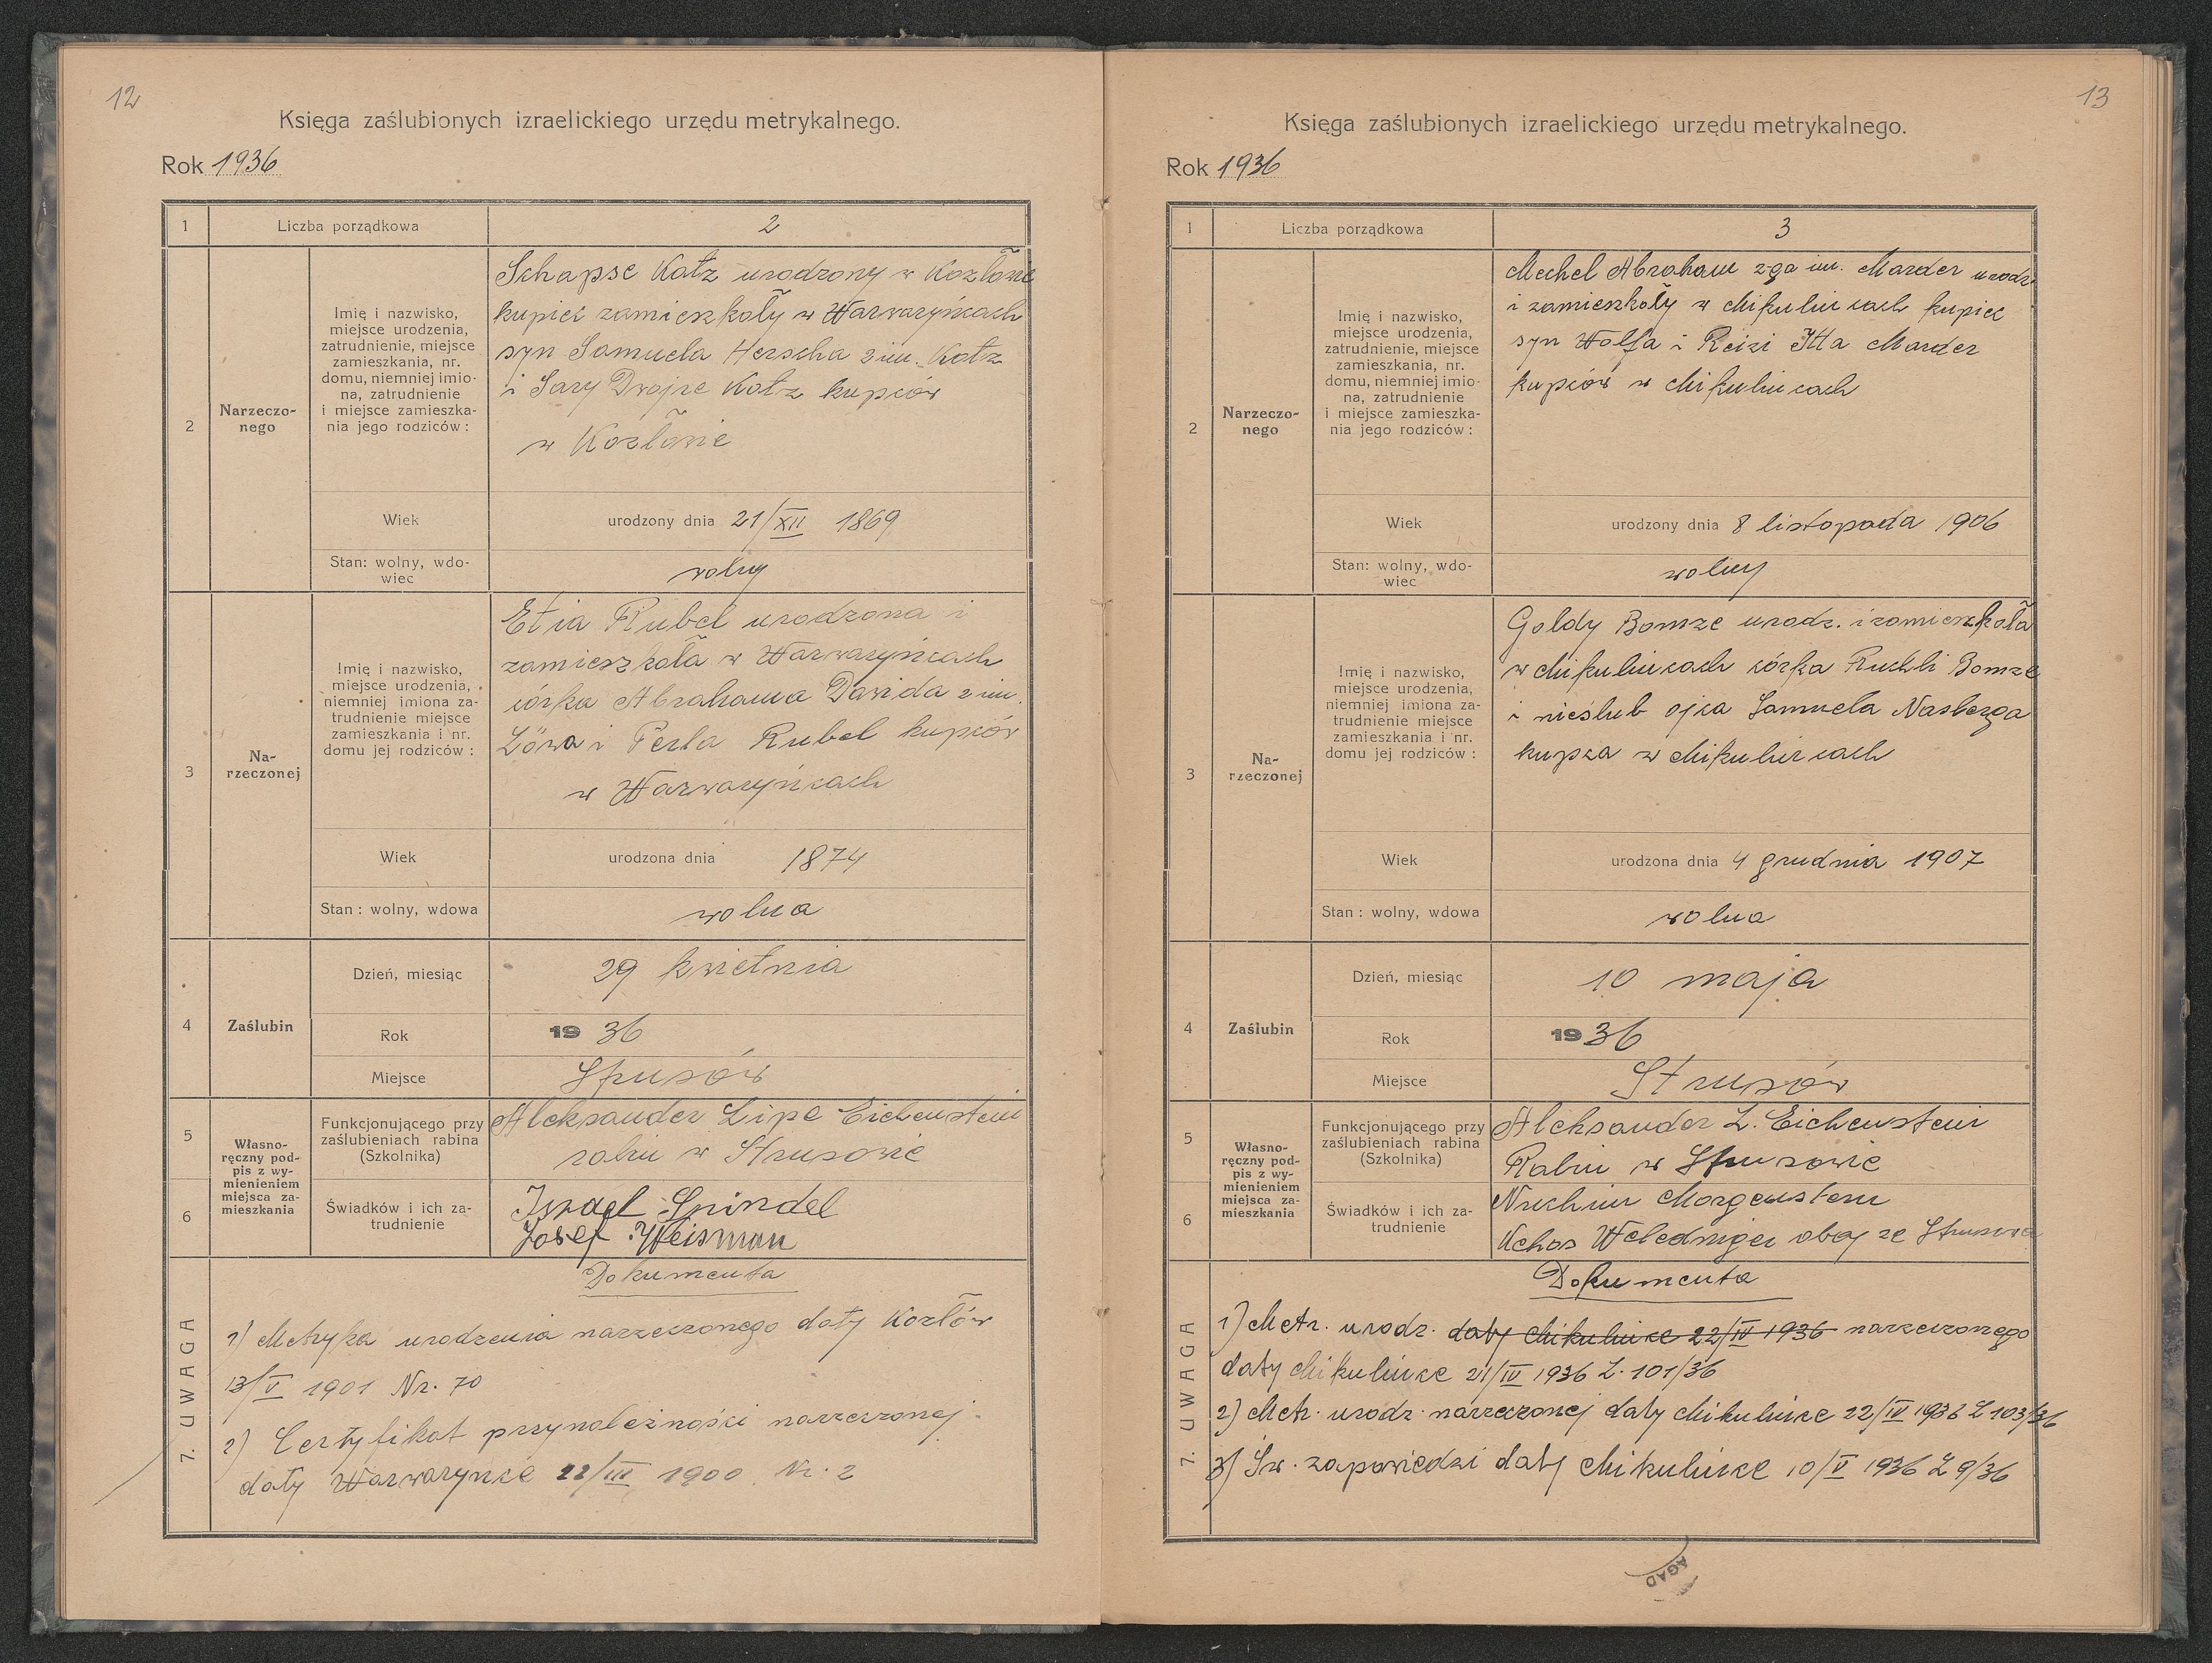 12
Księga zaślubionych izraelickiego urzędu metrykalnego.
Rok 1936
1
Liczba porządkowa
2
2
Narzeczo-
nego
Imię i nazwisko,
miejsce urodzenia,
zatrudnienie, miejsce
zamieszkania, nr.
domu, niemniej imio-
na, zatrudnienie
i miejsce zamieszka-
nia jego rodziców:
Schapse Katz urodzony w Kozłowie
kupiec zamieszkały w Warwaryńcach
syn Samuela Herscha 2 im. Katz
i Sary Dwojre Katz kupców
w Kozłowie
Wiek
urodzony dnia 21/XII 1869
Stan: wolny, wdo-
wiec
wolny
3
Na-
rzeczonej
Imię i nazwisko,
miejsce urodzenia,
niemniej imiona za-
trudnienie miejsce
zamieszkania i nr.
domu jej rodziców:
Etia Rubel urodzona i
zamieszkała w Warwaryńcach
córka Abrahama Dawida 2 im.
Löwa i Perla Rubel kupców
w Warwaryńcach
Wiek
urodzona dnia 1874
Stan: wolny, wdowa
wolna
4
Zaślubin
Dzień, miesiąc
29 kwietnia
Rok
19 36
Miejsce
Strusów
5
Własno-
ręczny pod-
pis z wy-
mienieniem
miejsca za-
mieszkania
Funkcjonującego przy
zaślubieniach rabina
(Szkolnika)
Aleksander Lipe Eichenstein
rabin w Strusowie
6
Świadków i ich za-
trudnienie
Israel Spindel
Josef Weisman
7. UWAGA
Dokumenta
1) Metryka urodzenia narzeczonego daty Kozłów
13/V 1901 Nr. 70
2) Certyfikat przynależności narzeczonej
daty Warwaryńce 22/III 1900 Nr. 2
13
Księga zaślubionych izraelickiego urzędu metrykalnego.
Rok 1936
1
Liczba porządkowa
3
2
Narzeczo-
nego
Imię i nazwisko,
miejsce urodzenia,
zatrudnienie, miejsce
zamieszkania, nr.
domu, niemniej imio-
na, zatrudnienie
i miejsce zamieszka-
nia jego rodziców:
Mechel Abraham 2-ga im. Marder urodz.
i zamieszkały w Mikulińcach kupiec
syn Wolfa i Reizi Itta Marder
kupców w Mikulińcach
Wiek
urodzony dnia 8 listopada 1906
Stan: wolny, wdo-
wiec
wolny
3
Na-
rzeczonej
Imię i nazwisko,
miejsce urodzenia,
niemniej imiona za-
trudnienie miejsce
zamieszkania i nr.
domu jej rodziców:
Goldy Bomze urodz. i zamieszkała
w Mikulińcach córka Ruchli Bomze
i nieślub ojca Samuela Nasberga
kupca w Mikulińcach
Wiek
urodzona dnia 4 grudnia 1907
Stan: wolny, wdowa
wolna
4
Zaślubin
Dzień, miesiąc
10 maja
Rok
19 36
Miejsce
Strusów
5
Własno-
ręczny pod-
pis z wy-
mienieniem
miejsca za-
mieszkania
Funkcjonującego przy
zaślubieniach rabina
(Szkolnika)
Aleksander L. Eichenstein
Rabin w Strusowie
6
Świadków i ich za-
trudnienie
Nuchim Morgenstern
Weledniger obaj ze Strusowa
7. UWAGA
Dokumenta
1) Metr. urodz. daty Mikulińce 22/IV 1936 narzeczonego
daty Mikulińce 21/IV 1936 L. 101/36
2) Metr. urodz. narzeczonej daty Mikulińce 22/IV 1936 L 103/36
3) Św. zapowiedzi daty Mikulińce 10/V 1936 L 9/36
AGAD